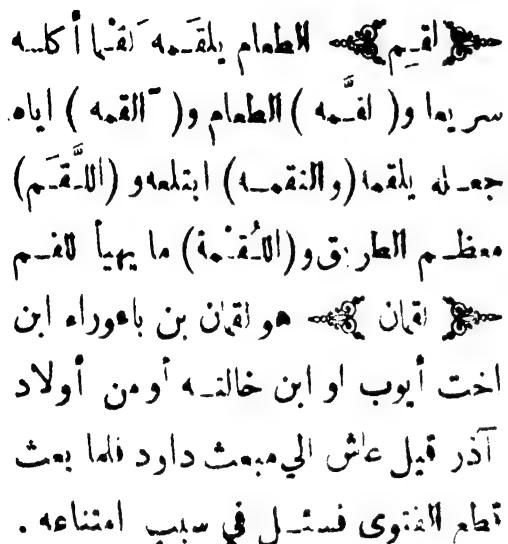 ﴿لقم﴾ الطعام يلقَمه لَقْما أكله
سريعا و( لقَّمه ) الطعام و( ألقمه ) اياه
جعله يلقمه (والتقمه) ابتلعه و (اللَّقَم)
معظم الطريق و(اللُقمة) ما يهيأ للفم
﴿ لقمان ﴾ هو لقمان بن باعوراء ابن
اخت أيوب او ابن خالته أو من أولاد
آذر قيل عاش الي مبعث داود فلما بعث
قطع الفتوى فسئل في سبب امتناعه .